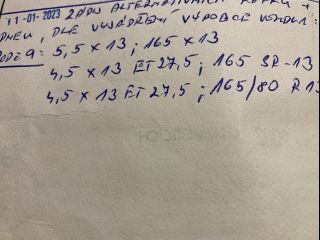 11-01-2023 ZÁPIS ALTERNATIVNÍCH
PNEU, DLE VYJÁDŘENÍ VÝROBCE VOZIDLA:
5,5 x 13 ; 165 x 13
4,5 x 13 ET 27,5 ; 165 SR-13
4,5 x 13 ET 27,5 ; 165/80 R13